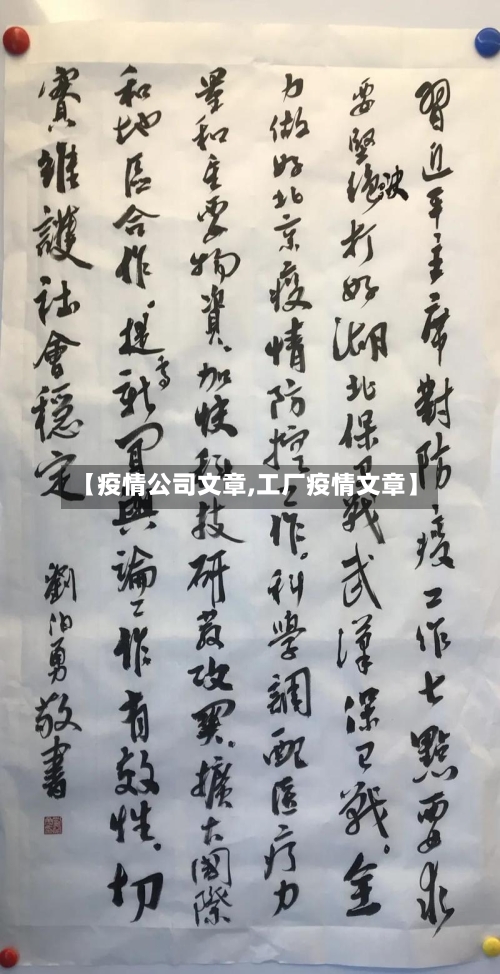 習近平主席對防疫工作七點要求
要堅决打好湖北保卫戰武漢保卫戰。全
力做好北京疫情防控工作。科學調配医疗力
量和重要物資。加快科技研發攻関。擴大國際
和地區合作。提高新聞輿論工作有效性。切
實維護社會穩定
劉伯勇敬書
【疫情公司文章,工厂疫情文章】